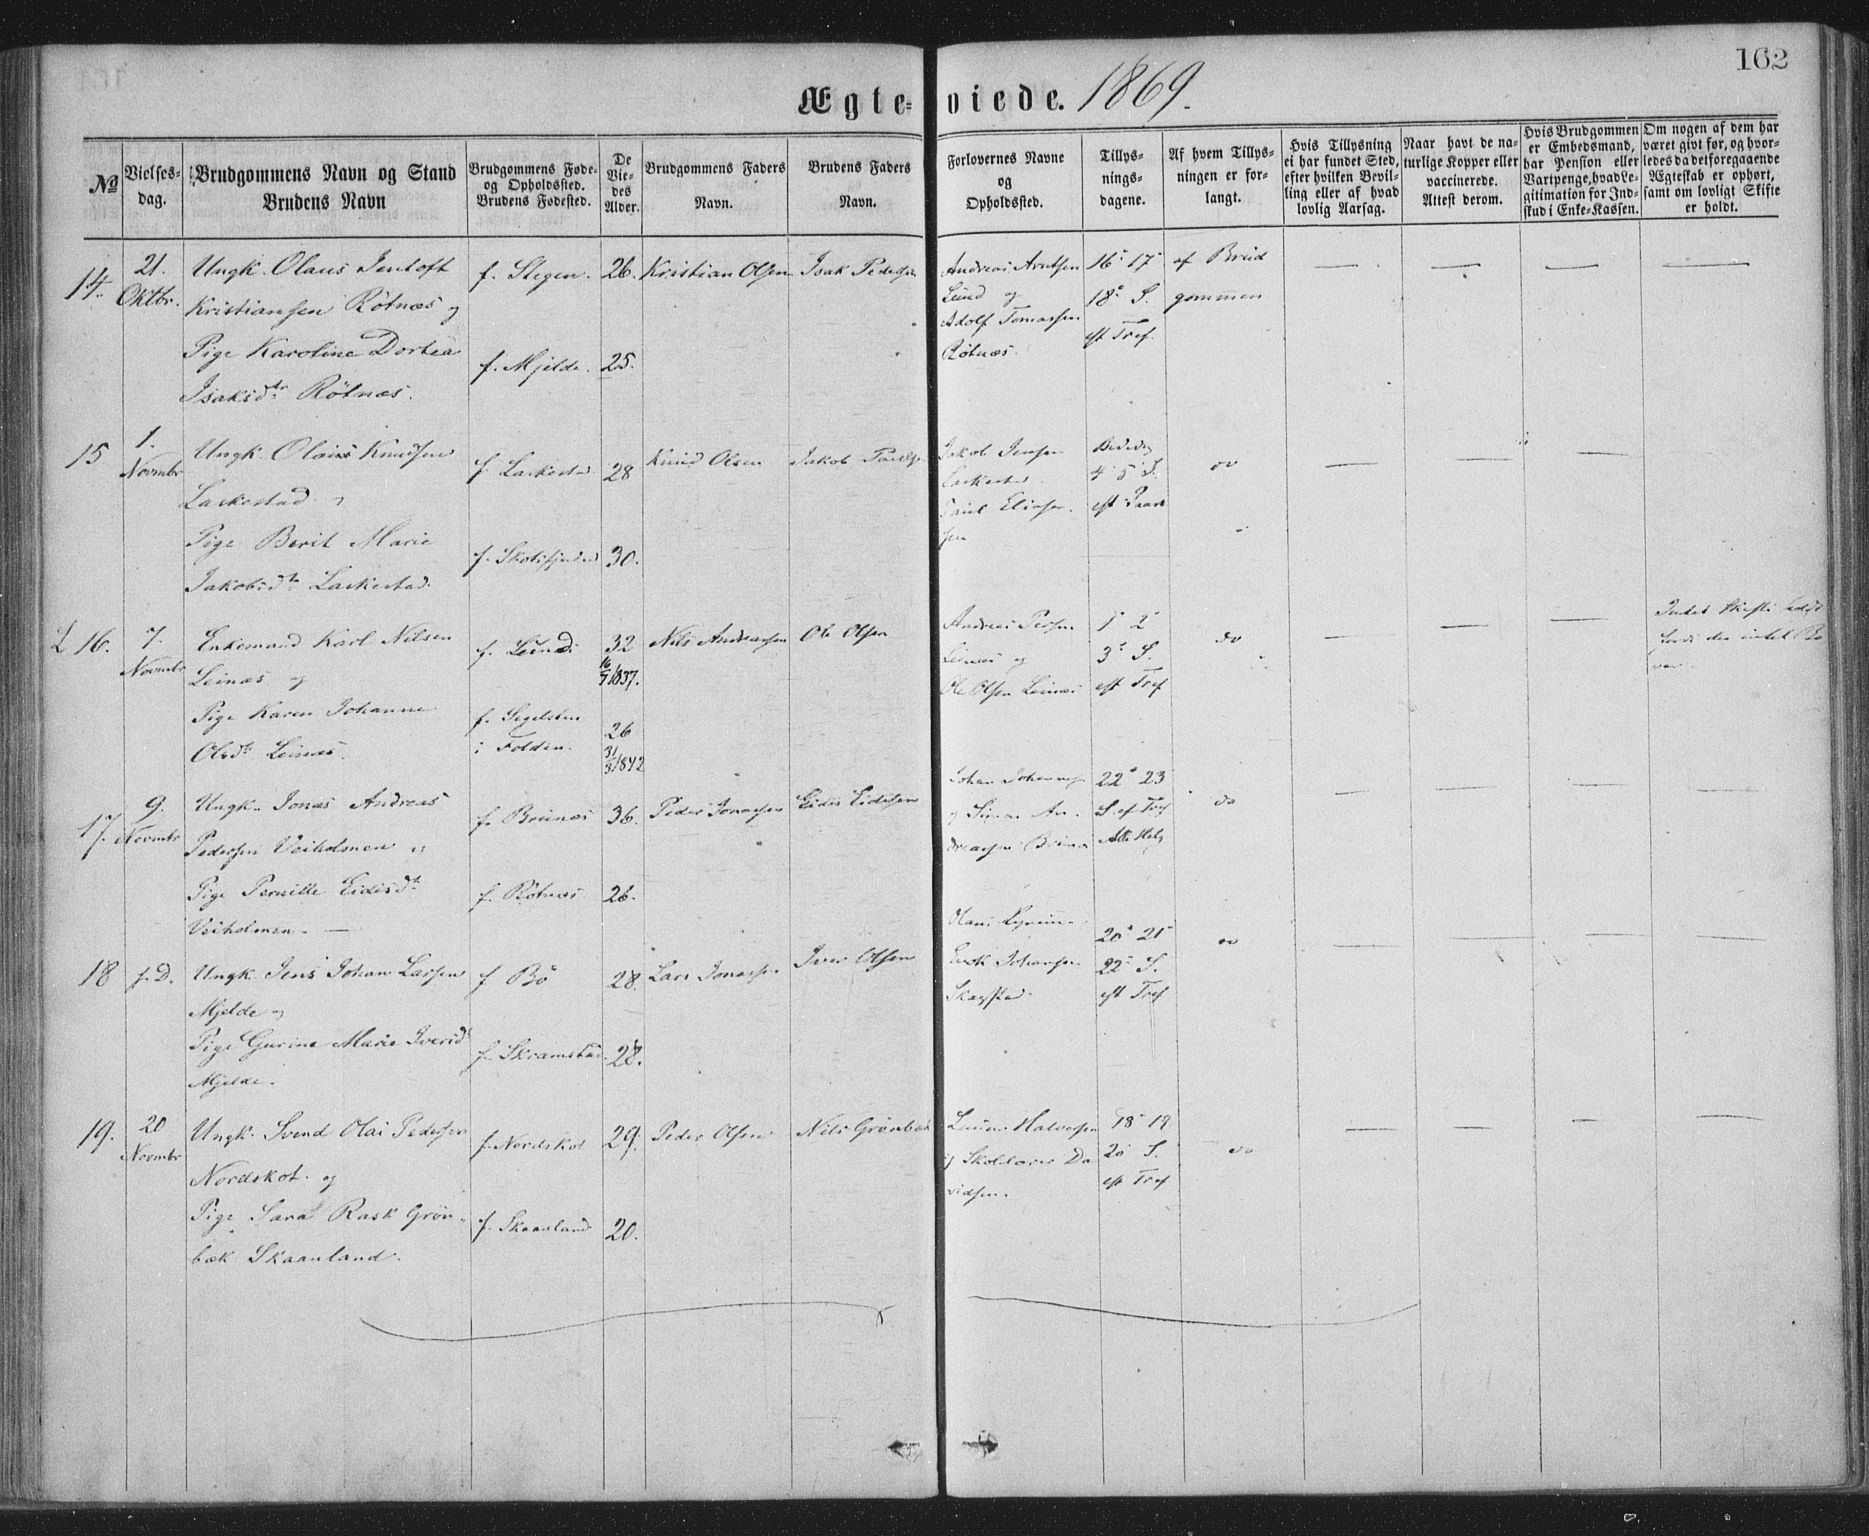 162
Ægte- viede. 1869.
No
Vielses-
dag.
Brudgommens Navn og Stand
Brudens Navn
Brudgommens Føde-
og Opholdssted.
Brudens Fødested.
De
Vie-
des
Alder.
Brudgommens Faders
Navn.
Brudens Faders
Navn.
Forlovernes Navne
og
Opholdssted.
Tillys-
nings-
dagene.
Af hvem Tillys-
ningen er for-
langt.
Hvis Tillysning
ei har fundet Sted,
efter hvilken Bevil-
ling eller af hvad
lovlig Aarsag.
Naar havt de na-
turlige Kopper eller
vaccinerede.
Attest derom.
Hvis Brudgommen
er Embedsmand,
har Pension eller
Vartpenge, hvad Le-
gitimation for Ind-
skud i Enke-Kassen.
Om nogen af dem har
været givt før, og hvor-
ledes da det foregaaende
Ægteskab er ophørt,
samt om lovligt Skifte
er holdt.
14.
21.
Oktbr.
Ungk. Olaus Jentoft
Kristiansen Røtnæs og
Pige Karoline Dortea
Isaksdtr Røtnæs.
f. Stegen.
f. Mjelde.
26.
25.
Kristian Olsen
Isak Pedersen
Andreas Arntsen
Lund og
Adolf Tomassen
Røtnæs.
16 17
18 S.
eft Tref.
af Brud
gommen
15
1.
Novmbr
Ungk. Olaus Knudsen
Laskestad
Pige Berit Marie
Jakobsdtr Laskestad.
f. Laskestad
28
30.
Knud Olsen
Jakob
Jakob Jensen
Laskestad
4 5 S.
do
16.
7.
Novmbr
Enkemand Karl Nilsen
Leinæs og
Pige Karen Johanne
Olsdtr Leinæs.
f. Leinæs
f. Segelsten
i Folden.
32
16/5 1837.
26
31/3 1842
Nils Andreassen
Ole Olsen
Andreas
Leinæs og
Ole Olsen Leinæs
1 2
3 S.
eft Tref
do
17.
9.
Novmbr
Ungk. Jonas Andreas
Pedersen Veiholmen
Pige Pernille Eidisdtr
Veiholmen.
f. Brunæs
f. Røtnæs
36.
26.
Peder Jonassen
Eidis Eidissen
Johan
22 23
S. ef Tref
do
18
f. D.
Ungk. Jens Johan Larsen
Mjelde
Pige Gurine Marie Iversdtr
Mjelde.
f Bø
f. Skramstad.
28.
28.
Lars Jonassen
Iver Olsen
Johansen
Skagstad.
20 21
22 S.
eft Tref
do
19.
20
Novmbr
Ungk. Svend Olai Pedersen
Nordskot. og
Pige Sara Rask Grøn-
bæk Skaanland.
f. Nordskot
f. Skaanland
29.
20.
Peder Olsen
Nils Grønbæk
Halvorsen
og Skolelærer Da
vidsen.
18 19
20 S.
eft Tref
do